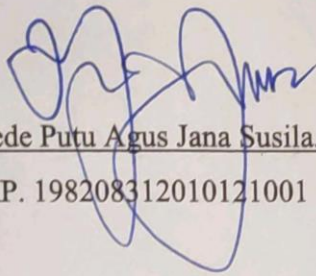 ede Putu Agus Jana Susila,
P. 198208312010121001